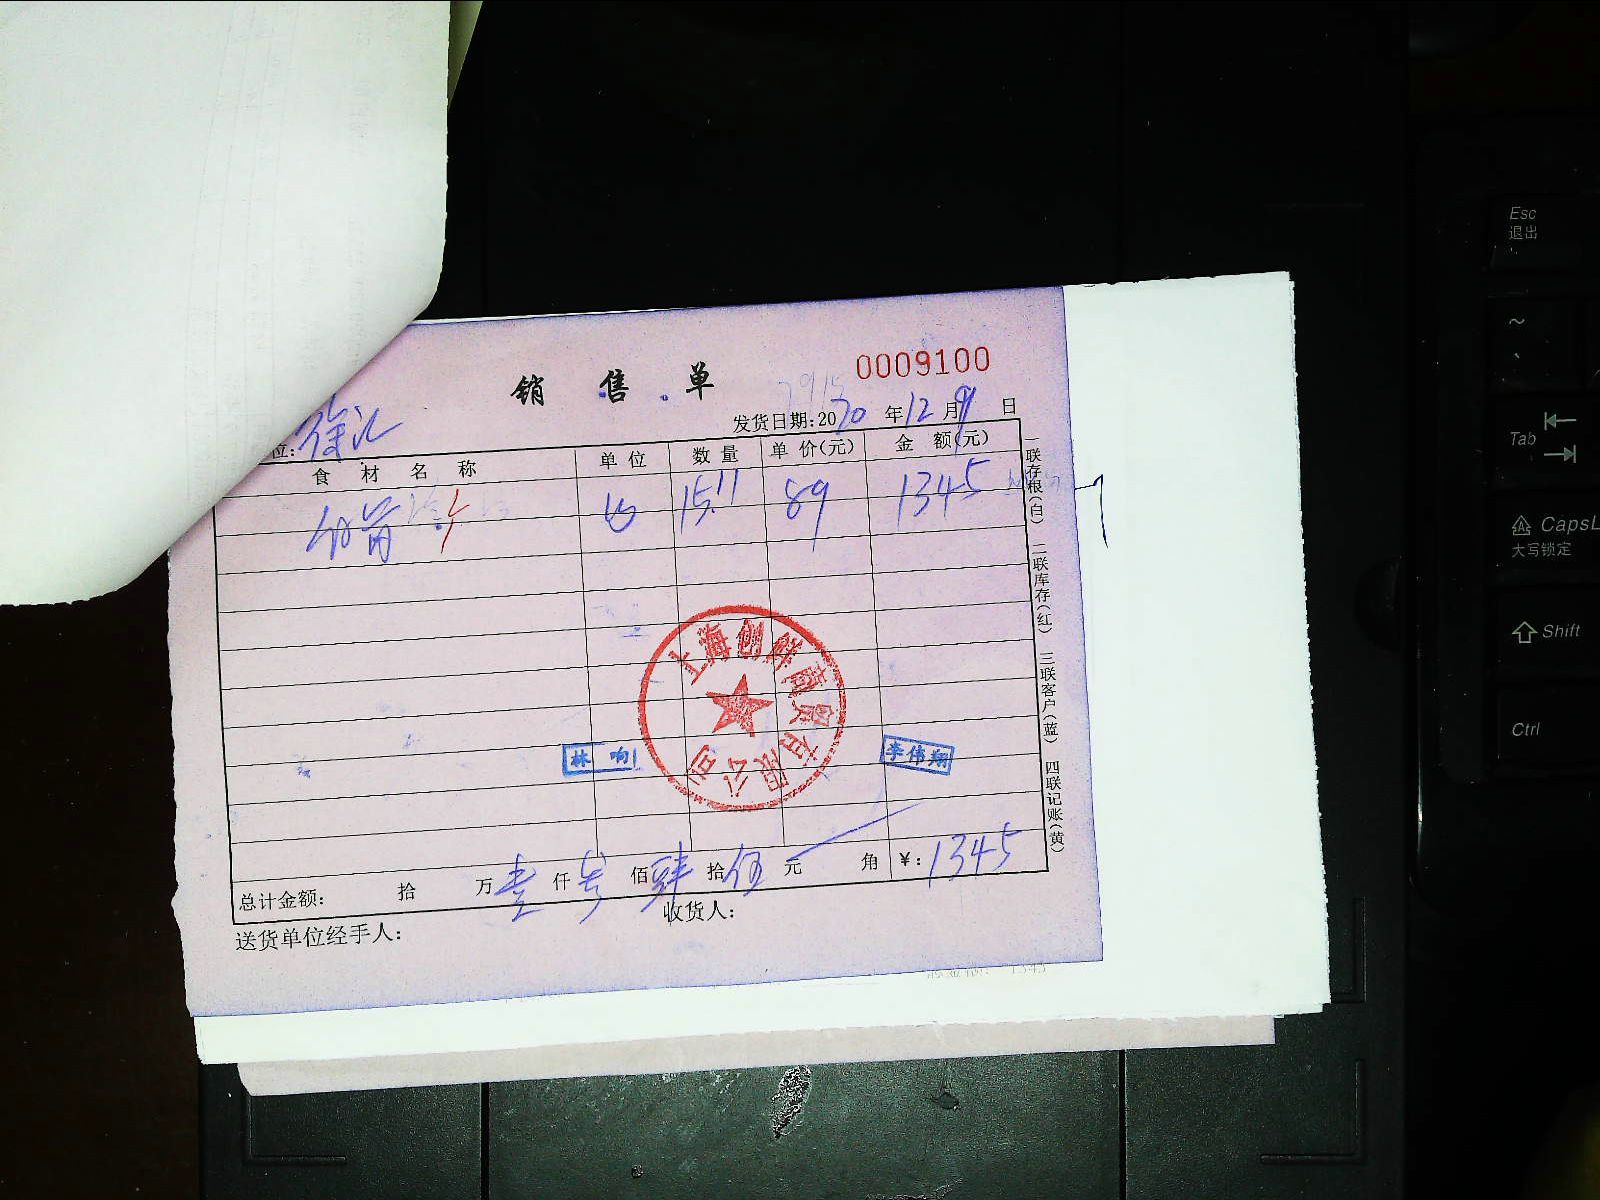 销售单
0009100
位:徐汇
发货日期:2020年12月9日
食材名称 单位 数量 单价(元) 金额(元)
15.11 89 1345
上海创鲜商贸有限公司
林响
李伟翔
总计金额: 拾 万壹仟叁佰肆拾伍元 角 ¥:1345
送货单位经手人: 收货人:
一联存根(白) 二联库存(红) 三联客户(蓝) 四联记账(黄)
Esc
退出
~
Tab
CapsL
大写锁定
Shift
Ctrl